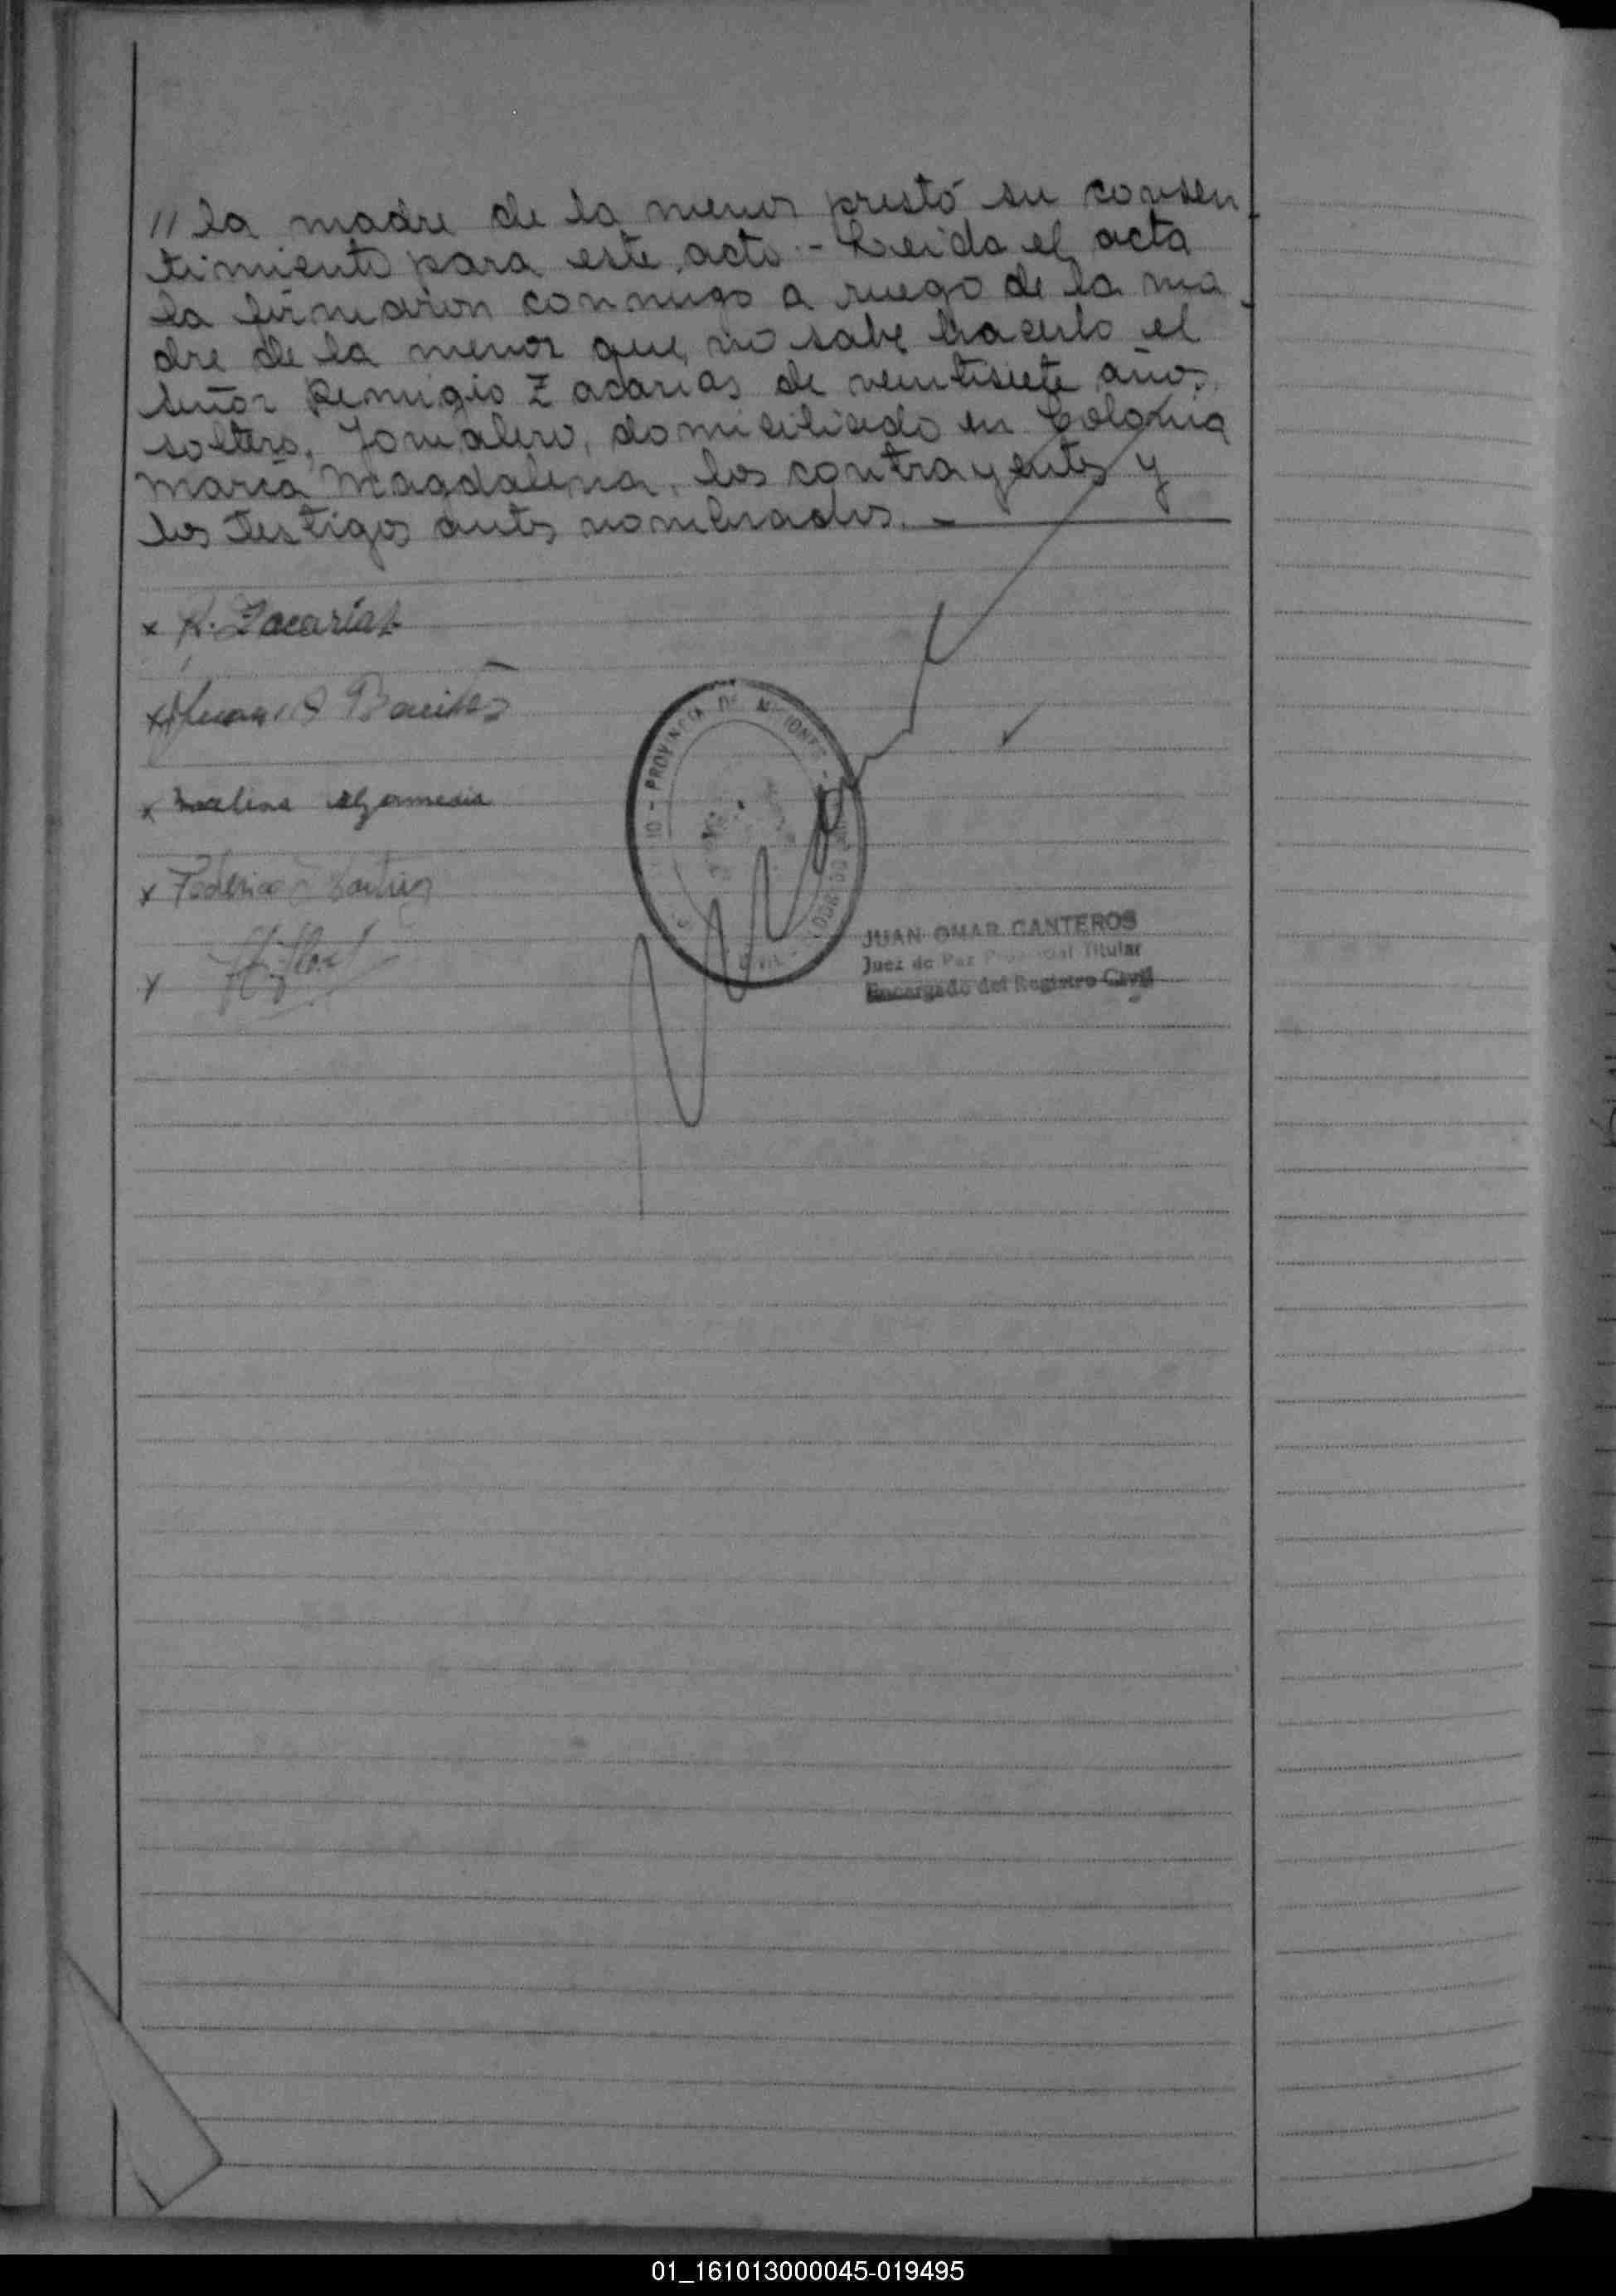 // la madre de la menor prestó su consen
timiento para este acto. - Leida el acta
la firmaron conmigo a ruego de la ma
dre de la menor que no sabe hacerlo el
señor Remigio Zacarias de veintisiete años,
soltero, Jornalero, domiciliado en Colonia
María Magdalena, los contrayentes y
los testigos antes nombrados. -
x R. Zacarias
x Juan Benitez
x
x Federico
x
PROVINCIA DE MISIONES
JUAN OMAR CANTEROS
Juez de Paz Titular
Encargado del Registro Civil
01_161013000045-019495